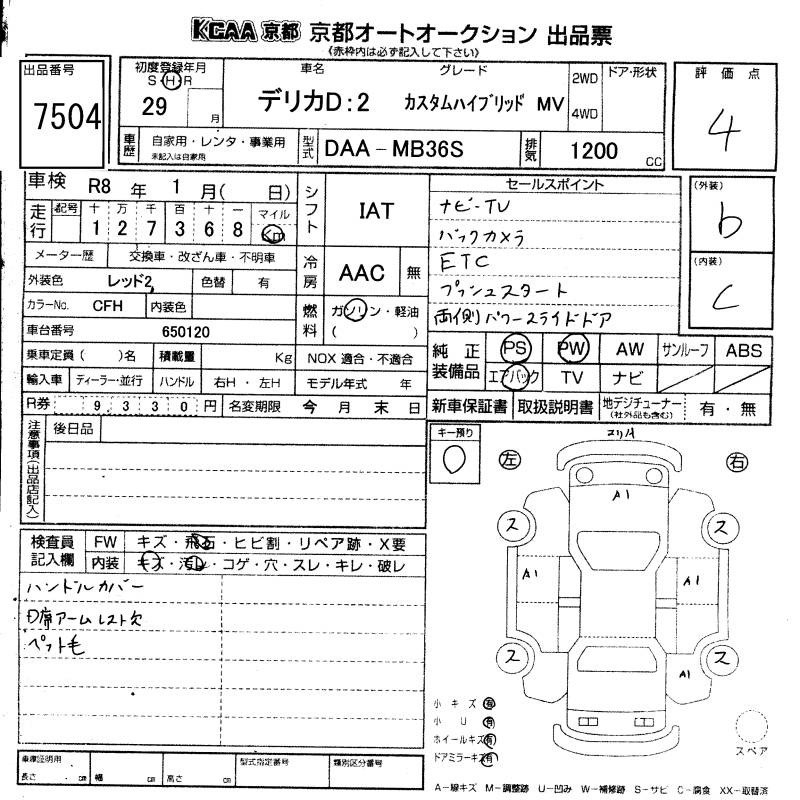 KCAA 京都 京都オートオークション 出品票
《赤枠内は必ず記入して下さい》
出品番号
7504
初度登録年月
S・H・R
29 月
車名 グレード
デリカD:2 カスタムハイブリッド MV
2WD
4WD
ドア・形状
評価点
4
車歴
自家用・レンタ・事業用
未記入は自家用
型式
DAA-MB36S
排気
1200 CC
車検 R8 年 1 月( 日)
走行
記号 十 万 千 百 十 一 マイル
1 2 7 3 6 8 Km
シフト
IAT
メーター歴 交換車・改ざん車・不明車
外装色 レッド2 色替 有
冷房
AAC 無
カラーNo. CFH 内装色
燃料
ガソリン・軽油
( )
車台番号 650120
乗車定員( )名 積載量 Kg NOX 適合・不適合
輸入車 ディーラー・並行 ハンドル 右H・左H モデル年式 年
R券 9,330円 名変期限 今 月 末 日
セールスポイント
ナビ-TV
バックカメラ
ETC
プッシュスタート
両側パワースライドドア
(外装)
b
(内装)
C
純正装備品
PS PW AW サンルーフ ABS
エアバック TV ナビ
新車保証書 取扱説明書 地デジチューナー
(社外品も含む)
有・無
注意事項(出品店記入)
後日品
キー預り
0
左 右
A1
ス ス
A1 A1
ス ス
A1
検査員記入欄
FW キズ・飛石・ヒビ割・リペア跡・X要
内装 キズ・汚れ・コゲ・穴・スレ・キレ・破レ
ハンドルカバー
D席アームレスト欠
ペット毛
小キズ 有
小U 有
ホイールキズ 有
ドアミラーキズ 有
スペア
車庫証明用
長さ . cm 幅 cm 高さ cm
型式指定番号
類別区分番号
A-線キズ M-調整跡 U-凹み W-補修跡 S-サビ C-腐食 XX-取替済